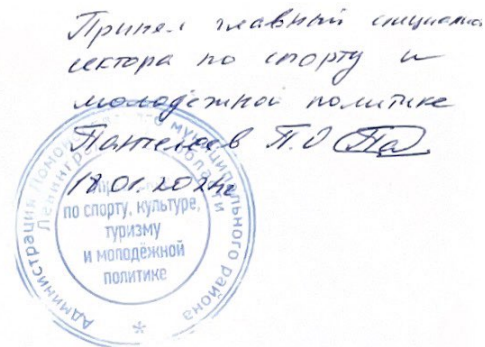 Принял главный специалист
сектора по спорту и
молодёжной политике
Пантелеев П.О
18.01.2024г
Администрация Ломоносовского муниципального района
Ленинградской области
по спорту, культуре,
туризму
и молодёжной
политике